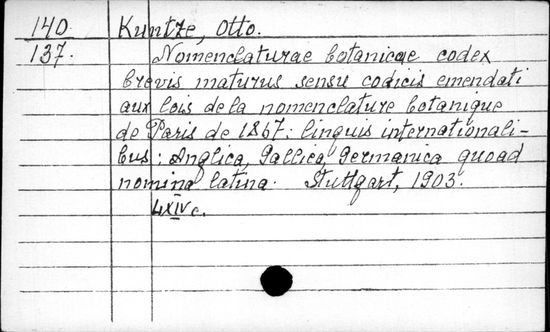 140 Kuntze, Otto.
137. Nomenclaturae botanicae codex
brevis maturus sensu codicis emendati
aux lois de la nomenclature botanique
de Paris de 1867: linguis internationali-
bus: Anglica, Gallica, Germanica quoad
nomina latina. Stuttgart, 1903.
LXIV c.